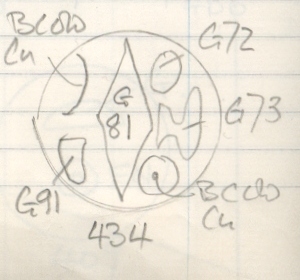 BCOW
Cu
G72
G
81
G73
G91
BCOW
Cu
434